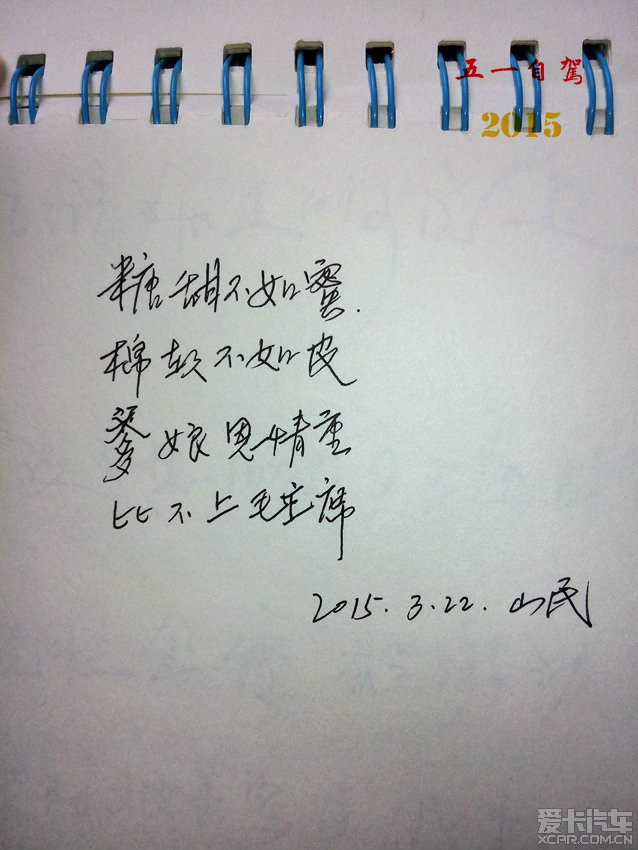 五一自駕
2015
糖甜不如蜜.
棉软不如皮
爹娘恩情重
比不上毛主席
2015.3.22.山民
爱卡汽车
XCAR.COM.CN